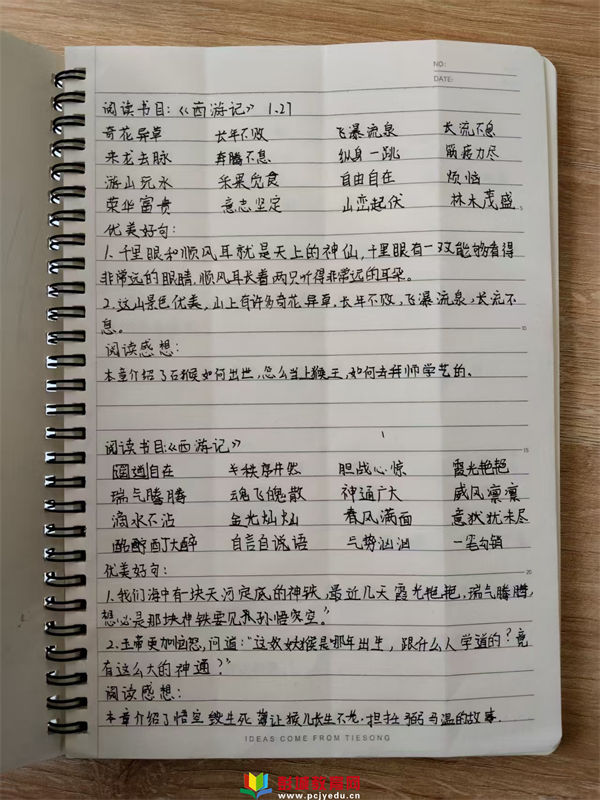 NO:
DATE:
阅读书目:《西游记》 1.27
奇花异草 长年不败 飞瀑流泉 长流不息
来龙去脉 奔腾不息 纵身一跳 筋疲力尽
游山玩水 采果觅食 自由自在 烦恼
荣华富贵 意志坚定 山峦起伏 林木茂盛
优美好句:
1.千里眼和顺风耳就是天上的神仙,千里眼有一双能够看得
非常远的眼睛,顺风耳长着两只听得非常远的耳朵。
2.这山景色优美,山上有许多奇花异草,长年不败,飞瀑流泉,长流不
息。
阅读感想:
本章介绍了石猴如何出世,怎么当上猴王,如何去拜师学艺的。
阅读书目:《西游记》
自在 秩序井然 胆战心惊 霞光艳艳
瑞气腾腾 魂飞魄散 神通广大 威风凛凛
滴水不沾 金光灿灿 春风满面 意犹未尽
酩酊大醉 自言自说语 气势汹汹 一笔勾销
优美好句:
1.我们海中有块天河定底的神铁,最近几天霞光艳艳,瑞气腾腾,
想必是那块神铁要见孙悟空。"
2.玉帝更加恼怒,问道:"这妖猴是哪年出生,跟什么人学道的?竟
有这么大的神通?"
阅读感想:
本章介绍了悟空 生死簿让猴儿长生不老,担任弼马温的故事.
IDEAS COME FROM TIESONG
5
10
15
20
朴诚教育网
www.pcjyedu.cn